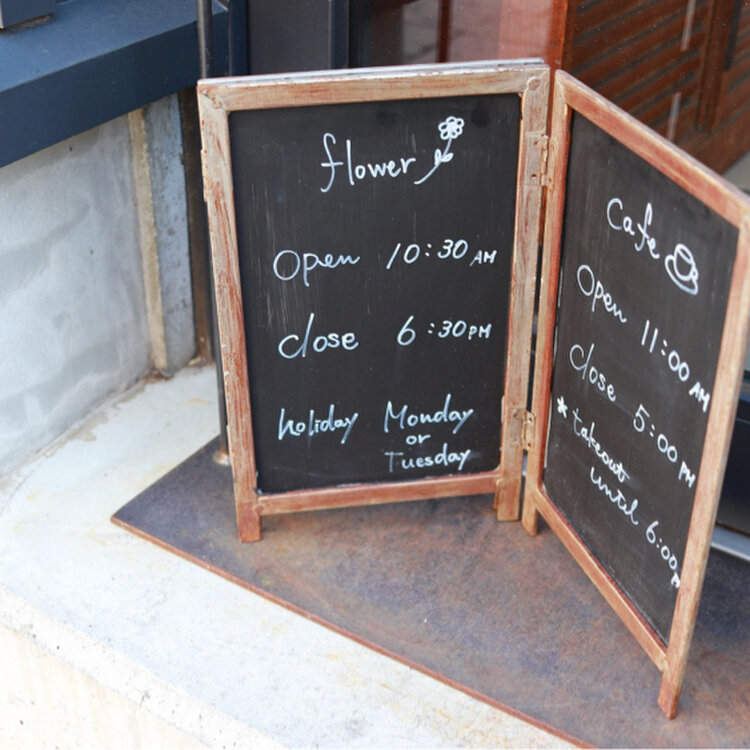 flower
Open 10:30 AM
close 6:30 PM
holiday Monday
or
Tuesday
Cafe
Open 11:00 AM
close 5:00 PM
* takeout
until 6:00 P